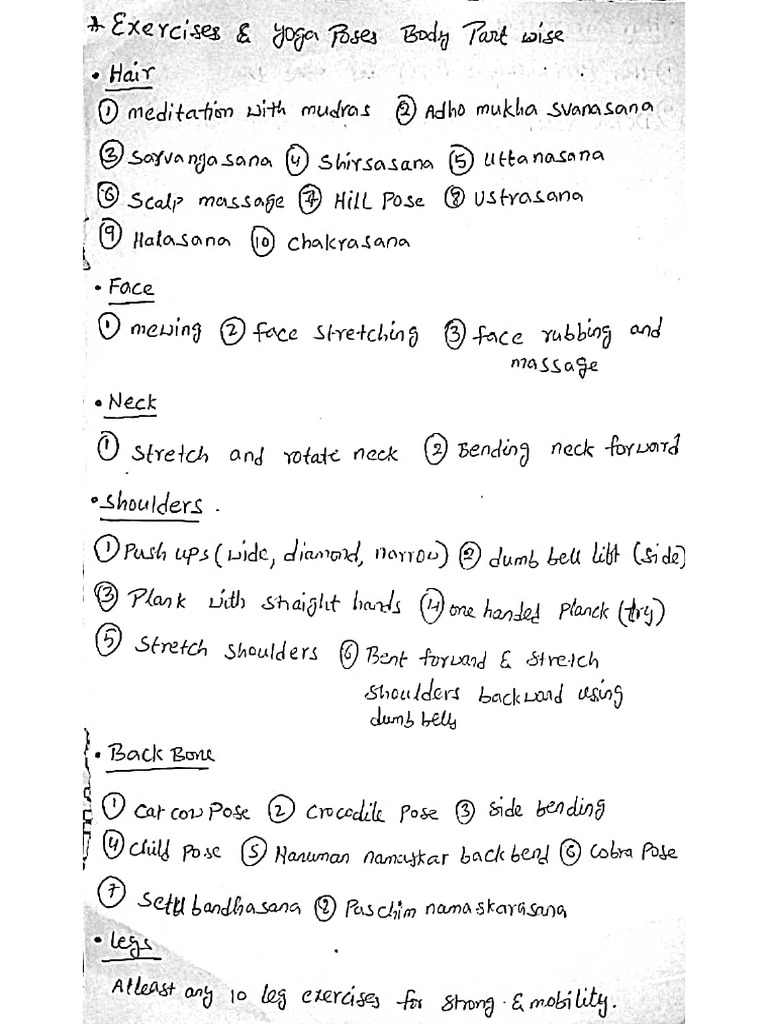 * Exercises & yoga Poses Body Part wise
• Hair
① meditation with mudras ② Adho mukha svanasana
③ Sarvangasana ④ Shirsasana ⑤ Uttanasana
⑥ Scalp massage ⑦ Hill Pose ⑧ Ustrasana
⑨ Halasana ⑩ Chakrasana
• Face
① mewing ② face stretching ③ face rubbing and
massage
• Neck
① Stretch and rotate neck ② Bending neck forward
• Shoulders.
① Push ups (wide, diamond, narrow) ② dumb bell lift (side)
③ Plank with straight hands ④ one handed Planck (try)
⑤ Stretch shoulders ⑥ Bent forward & stretch
shoulders backward using
dumb bells
• Back Bone
① Cat cow Pose ② Crocodile Pose ③ side bending
④ Child Pose ⑤ Hanuman namaskar back bend ⑥ Cobra Pose
⑦ Setu bandhasana ⑧ Paschim namaskarasana
• Legs
Atleast any 10 leg exercises for strong & mobility.